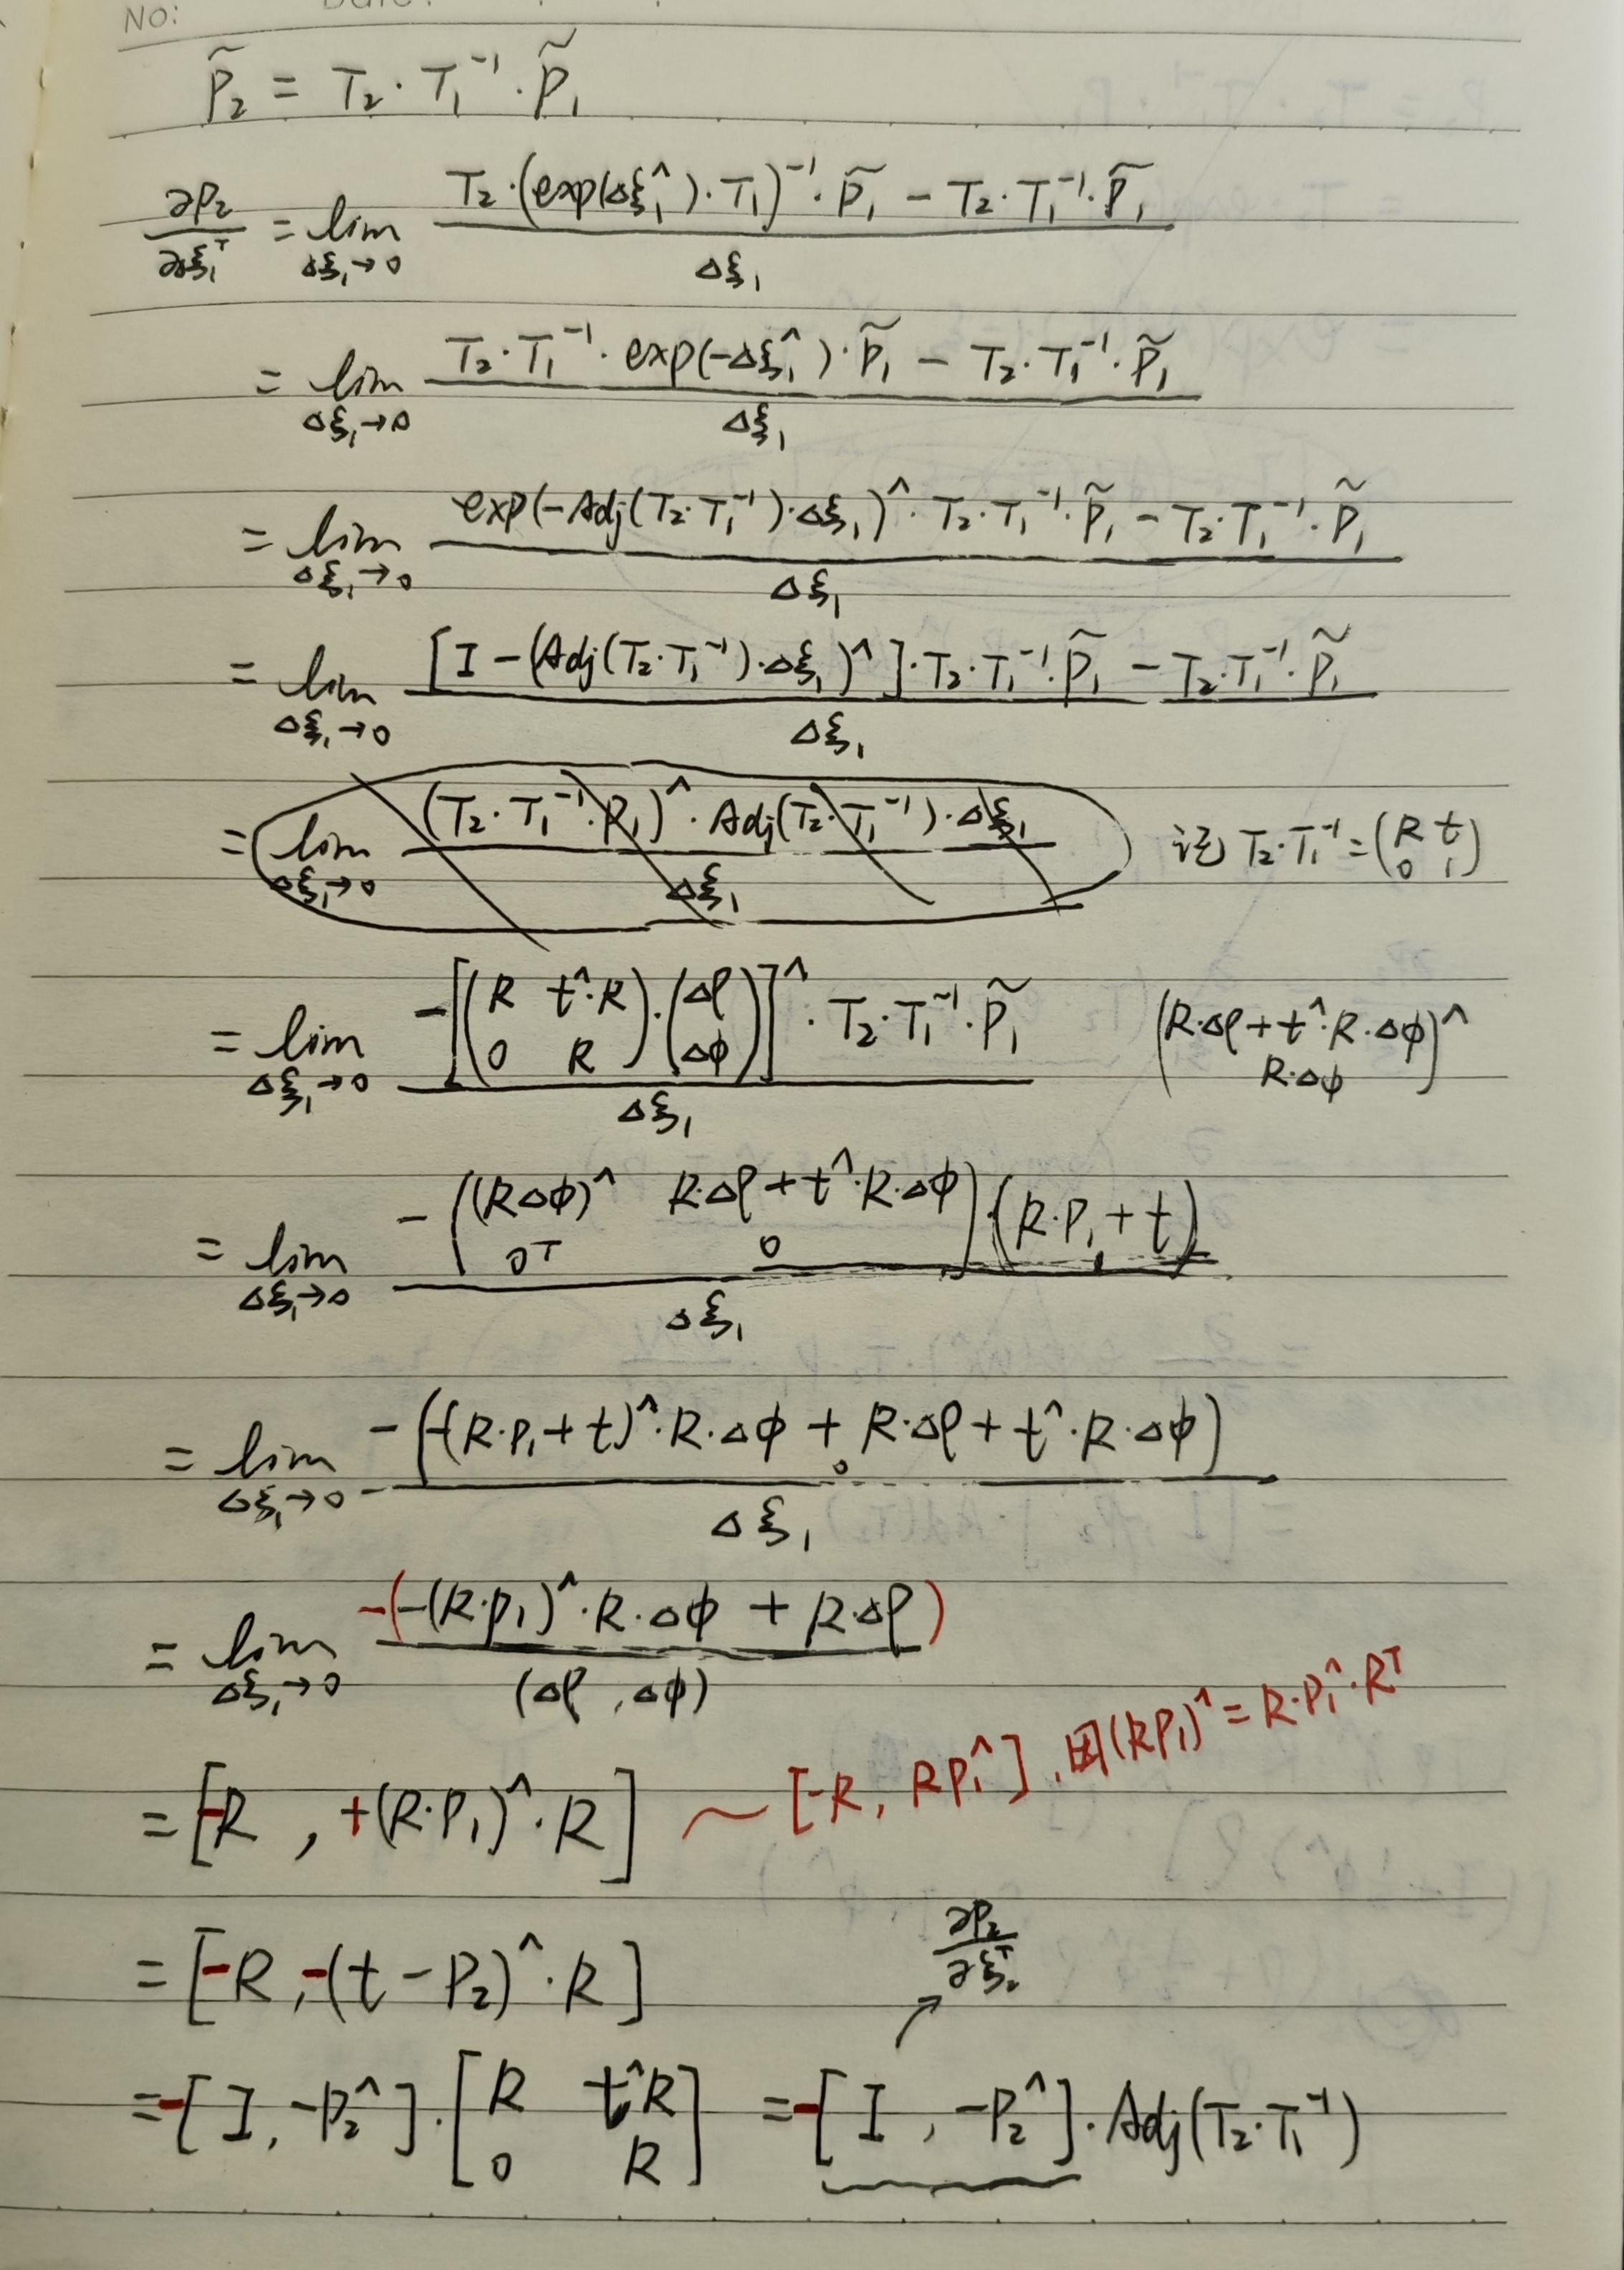 No: Date:
P̃₂ = T₂·T₁⁻¹·P̃₁
∂P₂/∂ξ₁ᵀ = lim_{Δξ₁→0} (T₂·(exp(Δξ₁^)·T₁)⁻¹·P̃₁ − T₂·T₁⁻¹·P̃₁) / Δξ₁
= lim_{Δξ₁→0} (T₂·T₁⁻¹·exp(−Δξ₁^)·P̃₁ − T₂·T₁⁻¹·P̃₁) / Δξ₁
= lim_{Δξ₁→0} (exp(−Adj(T₂·T₁⁻¹)·Δξ₁)^·T₂·T₁⁻¹·P̃₁ − T₂·T₁⁻¹·P̃₁) / Δξ₁
= lim_{Δξ₁→0} ([I − (Adj(T₂·T₁⁻¹)·Δξ₁)^]·T₂·T₁⁻¹·P̃₁ − T₂·T₁⁻¹·P̃₁) / Δξ₁
= lim_{Δξ₁→0} ((T₂·T₁⁻¹·P₁)^·Adj(T₂·T₁⁻¹)·Δξ₁) / Δξ₁ 记 T₂·T₁⁻¹ = (R t; 0 1)
= lim_{Δξ₁→0} −[(R t^·R; 0 R)·(Δρ; Δϕ)]^·T₂·T₁⁻¹·P̃₁ / Δξ₁ (R·Δρ + t^·R·Δϕ; R·Δϕ)^
= lim_{Δξ₁→0} −((RΔϕ)^ R·Δρ + t^·R·Δϕ; 0ᵀ 0)·(R·P₁ + t) / Δξ₁
= lim_{Δξ₁→0} −(−(R·P₁ + t)^·R·Δϕ + R·Δρ + t^·R·Δϕ; 0) / Δξ₁
= lim_{Δξ₁→0} −(−(R·P₁)^·R·Δϕ + R·Δρ) / (Δρ, Δϕ)
= [−R, +(R·P₁)^·R] ~ [−R, RP₁^], 因(RP₁)^ = R·P₁^·Rᵀ
= [−R, −(t − P₂)^·R] ∂P₂/∂ξ₂ᵀ
= −[I, −P₂^]·[R t^R; 0 R] = −[I, −P₂^]·Adj(T₂·T₁⁻¹)